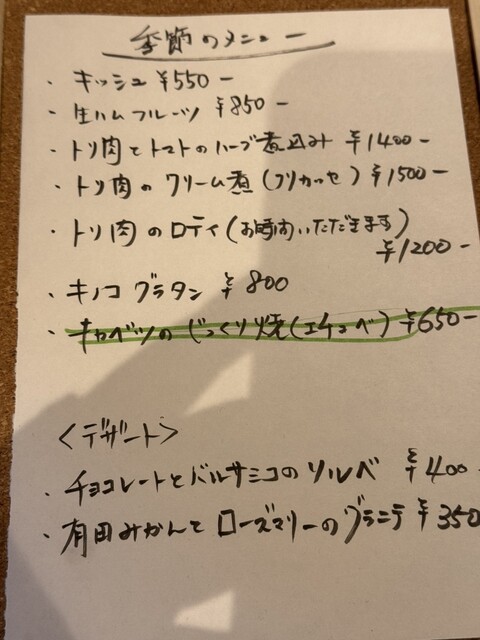 季節のメニュー
・キッシュ ¥550-
・生ハムフルーツ ¥850-
・トリ肉とトマトのハーブ煮込み ¥1400-
・トリ肉のクリーム煮(フリカッセ) ¥1500-
・トリ肉のロティ(お時間いただきます)
¥1200-
・キノコグラタン ¥800
・キャベツのじっくり焼(エチュベ) ¥650-
<デザート>
・チョコレートとバルサミコのソルベ ¥400-
・有田みかんとローズマリーのグラニテ ¥350